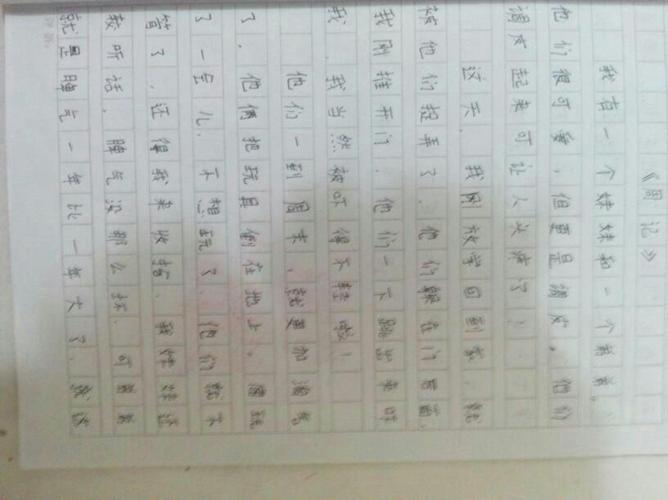 《周记》
我有一个妹妹和一个弟弟。
他们很可爱，但更是调皮，他们
调皮起来可让人头疼了！
这天，我刚放学回到家，就
被他们捉弄了，他们躲在门背面，
我刚推开门，他们一下跳出来吓
我，我当然被吓得不轻嗷！
他们一到周末，就更加淘气
了，他俩把玩具倒在地上，玩
了一会儿，不想玩了，他们就不
管了，还得我来收拾，我妹妹还
较听话，脾气没那么坏，可弟弟
就是脾气一年比一年大了，我该